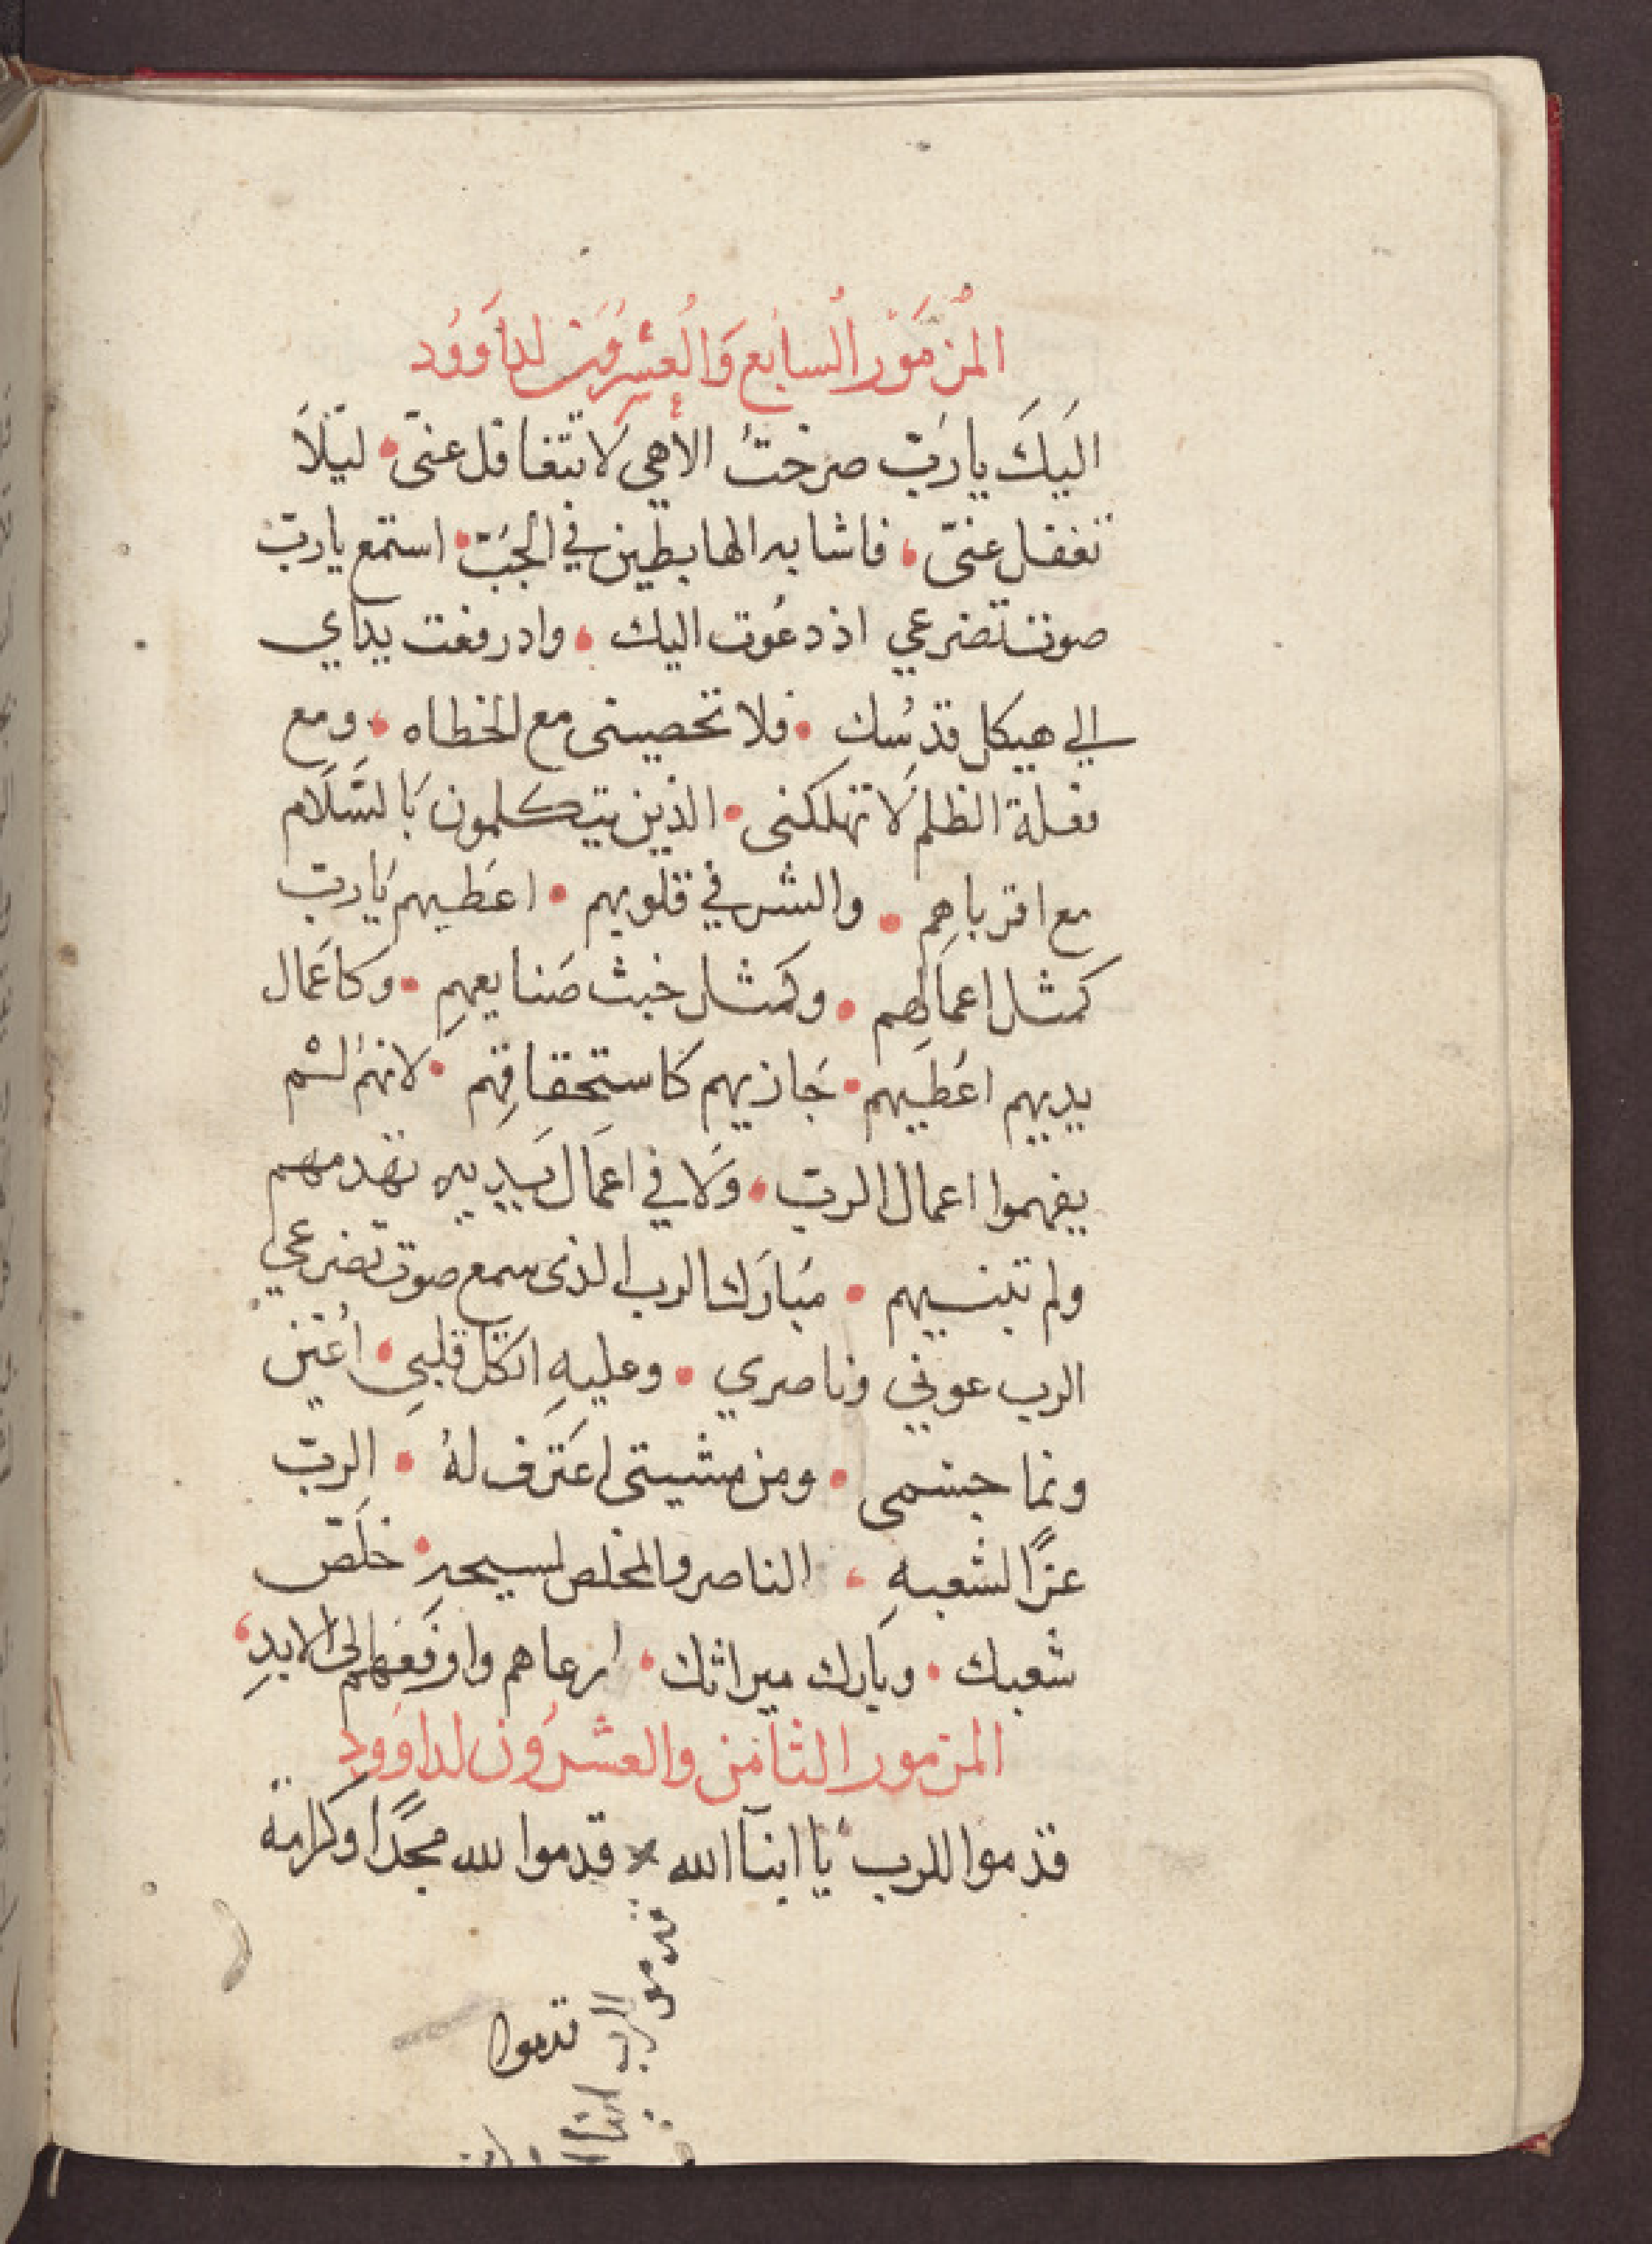 المُزمَوْر السابع وَالُعشرُوَن لداوَوُد
اليَكَ يارَبّ صرختُ الاهي لا تتغافل عنىّ • ليَلاَ
تغفل عنىّ • فاشابه الهابطين في الجُبّ • استمع يا ربّ
صوت تضرعي اذ دعُوت اليك • واد رفعت يداي
الي هيكل قدسُك • فلا تحصينى مع الخطاه • ومع
فعلة الظلم لا تهلكنى • الذين يتكلمون بَالسَّلَام
مع اقرباهِم • والشر في قلوبهم • اعَطيهم يَا ربّ
كمثل اعمالهِم • وكمَثل خبث صَنايعهمِ • وكاعَمال
يديهم اعَطيهم • جَازيهم كاستحقاقِهم • لانهمُ لمْ
يفهموا اعمال الربّ • وَلا في اعمَال يَديه تهدمهم
ولم تبنيهم • مبَارَك الرب الذى سمع صوت تضرعي
الرب عوني وناصري • وعليهِ اتكل قلبيِ • اعُنين
ونما جسمى • ومن مشيتى اعَترف لهُ • الربّ
عزًا لشعبهِ • الناصر والمخلص لمسيحهِ • خلَصّ
شعبك • وبارك ميراثك • ارعاهم وارفعَهم الى الابدِ
المزمور الثامَن والعشرُون لداوَود
قدموا للرب يا ابنآ الله × قدموا لله مجدًا وكرامة
قدمو
الرب
ابنا
قدموا